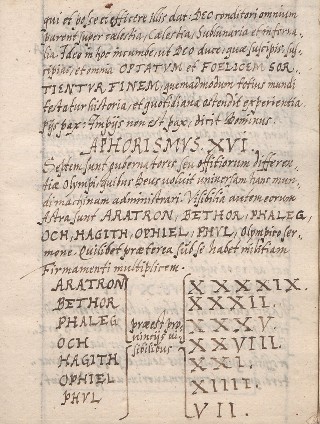 qui et posse et efficere illis dat: DEO conditori omnium
parent super cælestia, Cælestia, Sublunaria et inferna-
lia. Ideo in hoc incumbe, ut DEO duce, quæ suscipis sus-
cipias, et omnia OPTATUM et FOELICEM SOR-
TIENTUR FINEM, quemadmodum totius mundi
testatur historia, et quotidiana ostendit experientia
pijs pax: Impijs non est pax, dicit Dominus.
APHORISMUS. XVI.
Septem sunt gubernatores seu offitiorum differen-
tiæ Olympi, quibus Deus voluit universam hanc mun-
di machinam administrari. Visibilia autem eorum
Astra sunt ARATRON, BETHOR, PHALEG,
OCH, HAGITH, OPHIEL, PHUL, Olympico ser-
mone. Quilibet præterea sub se habet militiam
Firmamenti multiplicem.
ARATRON XXXXIX.
BETHOR XXXII.
PHALEG præest pro XXXV.
OCH vincijs vi XXVIII.
HAGITH sibilibus XXI.
OPHIEL XIIII.
PHUL VII.